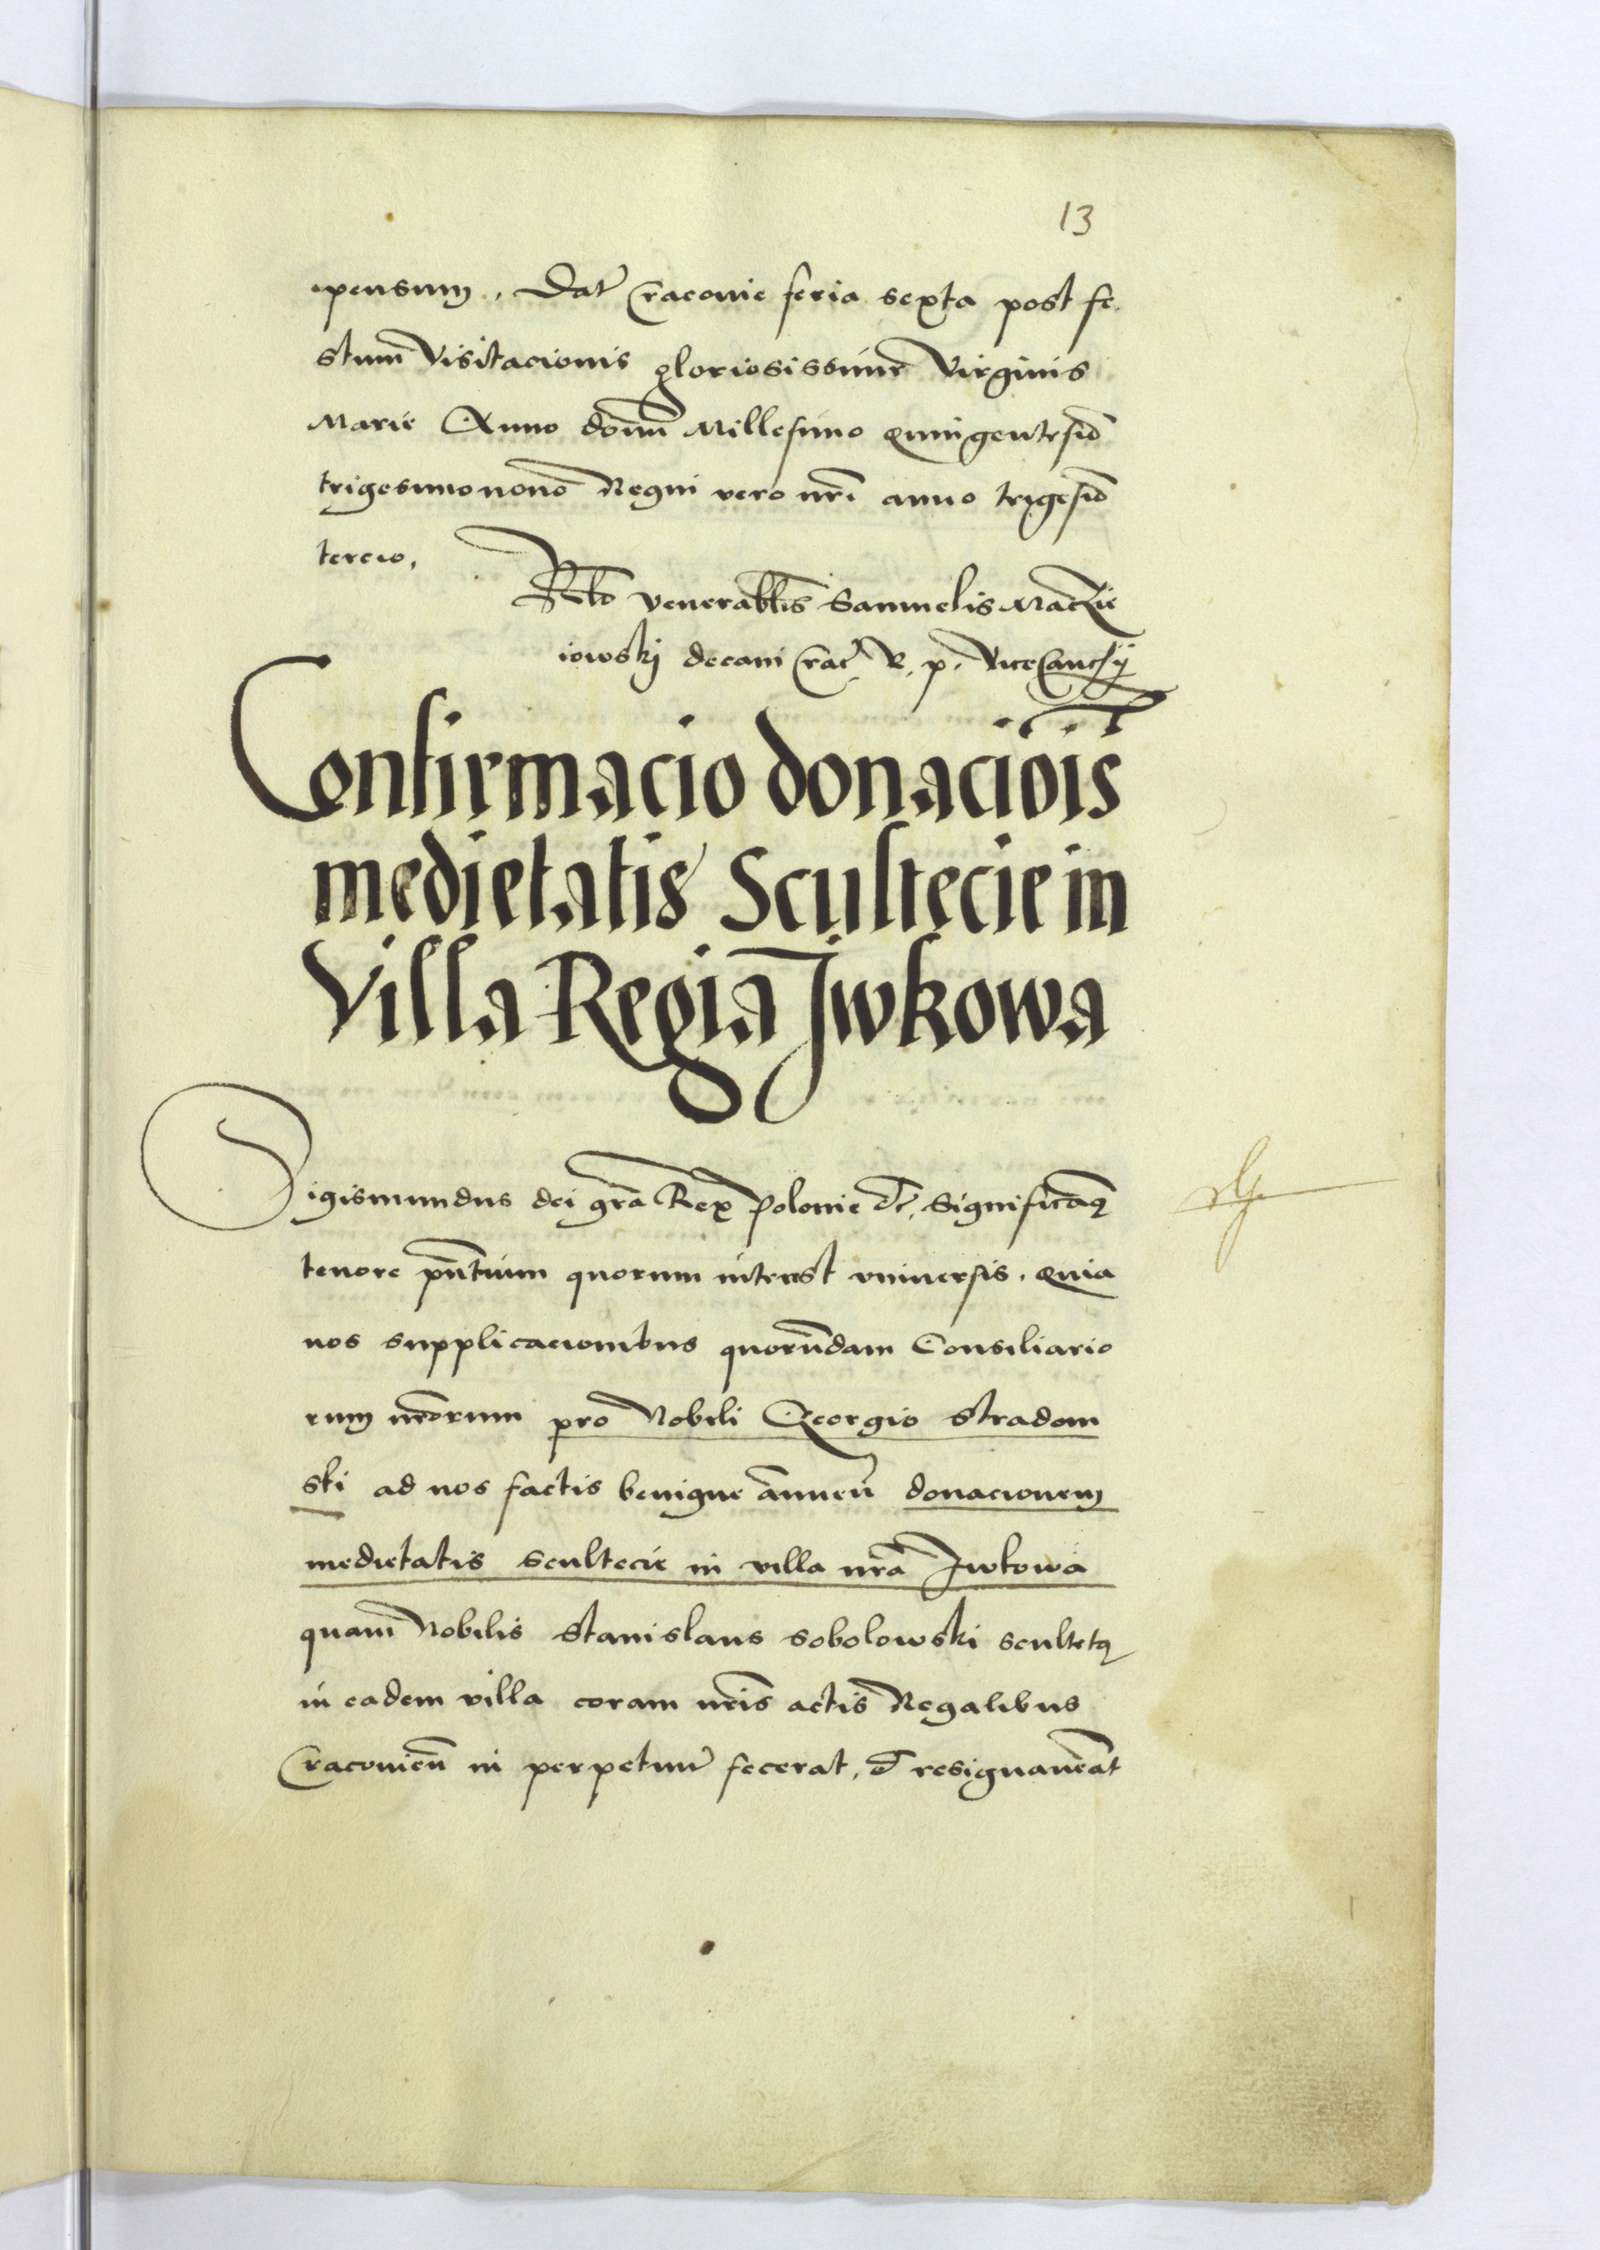 13
ıpensum, Dat̃ Cracovie feria sexta post fe.
stum̄ Visitacionis gloriosissime Virginis
Marie Anno dom̃ Millesimo quingentesīo
trigesimonono Regni vero nr̃i anno trigesīo
tercio,
Rlō venerabl̃is Samuelis Maczie
iowskj decani Crac̃ R. p. ViceCanc
Confirmacio donaciōis
medietatis Scultecie in
Villa Regia Jwkowa
Sigismundus dei gr̃a Rex Polonie etc̃. Significamꝰ
tenore pn̄tium quorum interest vniuersis. quia
nos supplicacionibus quorūdam Consiliario
rum nr̃orum pro Nobili Georgio Stradom
ski ad nos factis benigne ānuen̄ donacionem
medietatis scultecie in villa nr̃a Jwkowa
quam̄ Nobilis Stanislaus Sobolowski scultetꝰ
in eadem villa coram nr̃is actis Regalibus
Cracovien̄ in perpetuū fecerat, et resignauerat